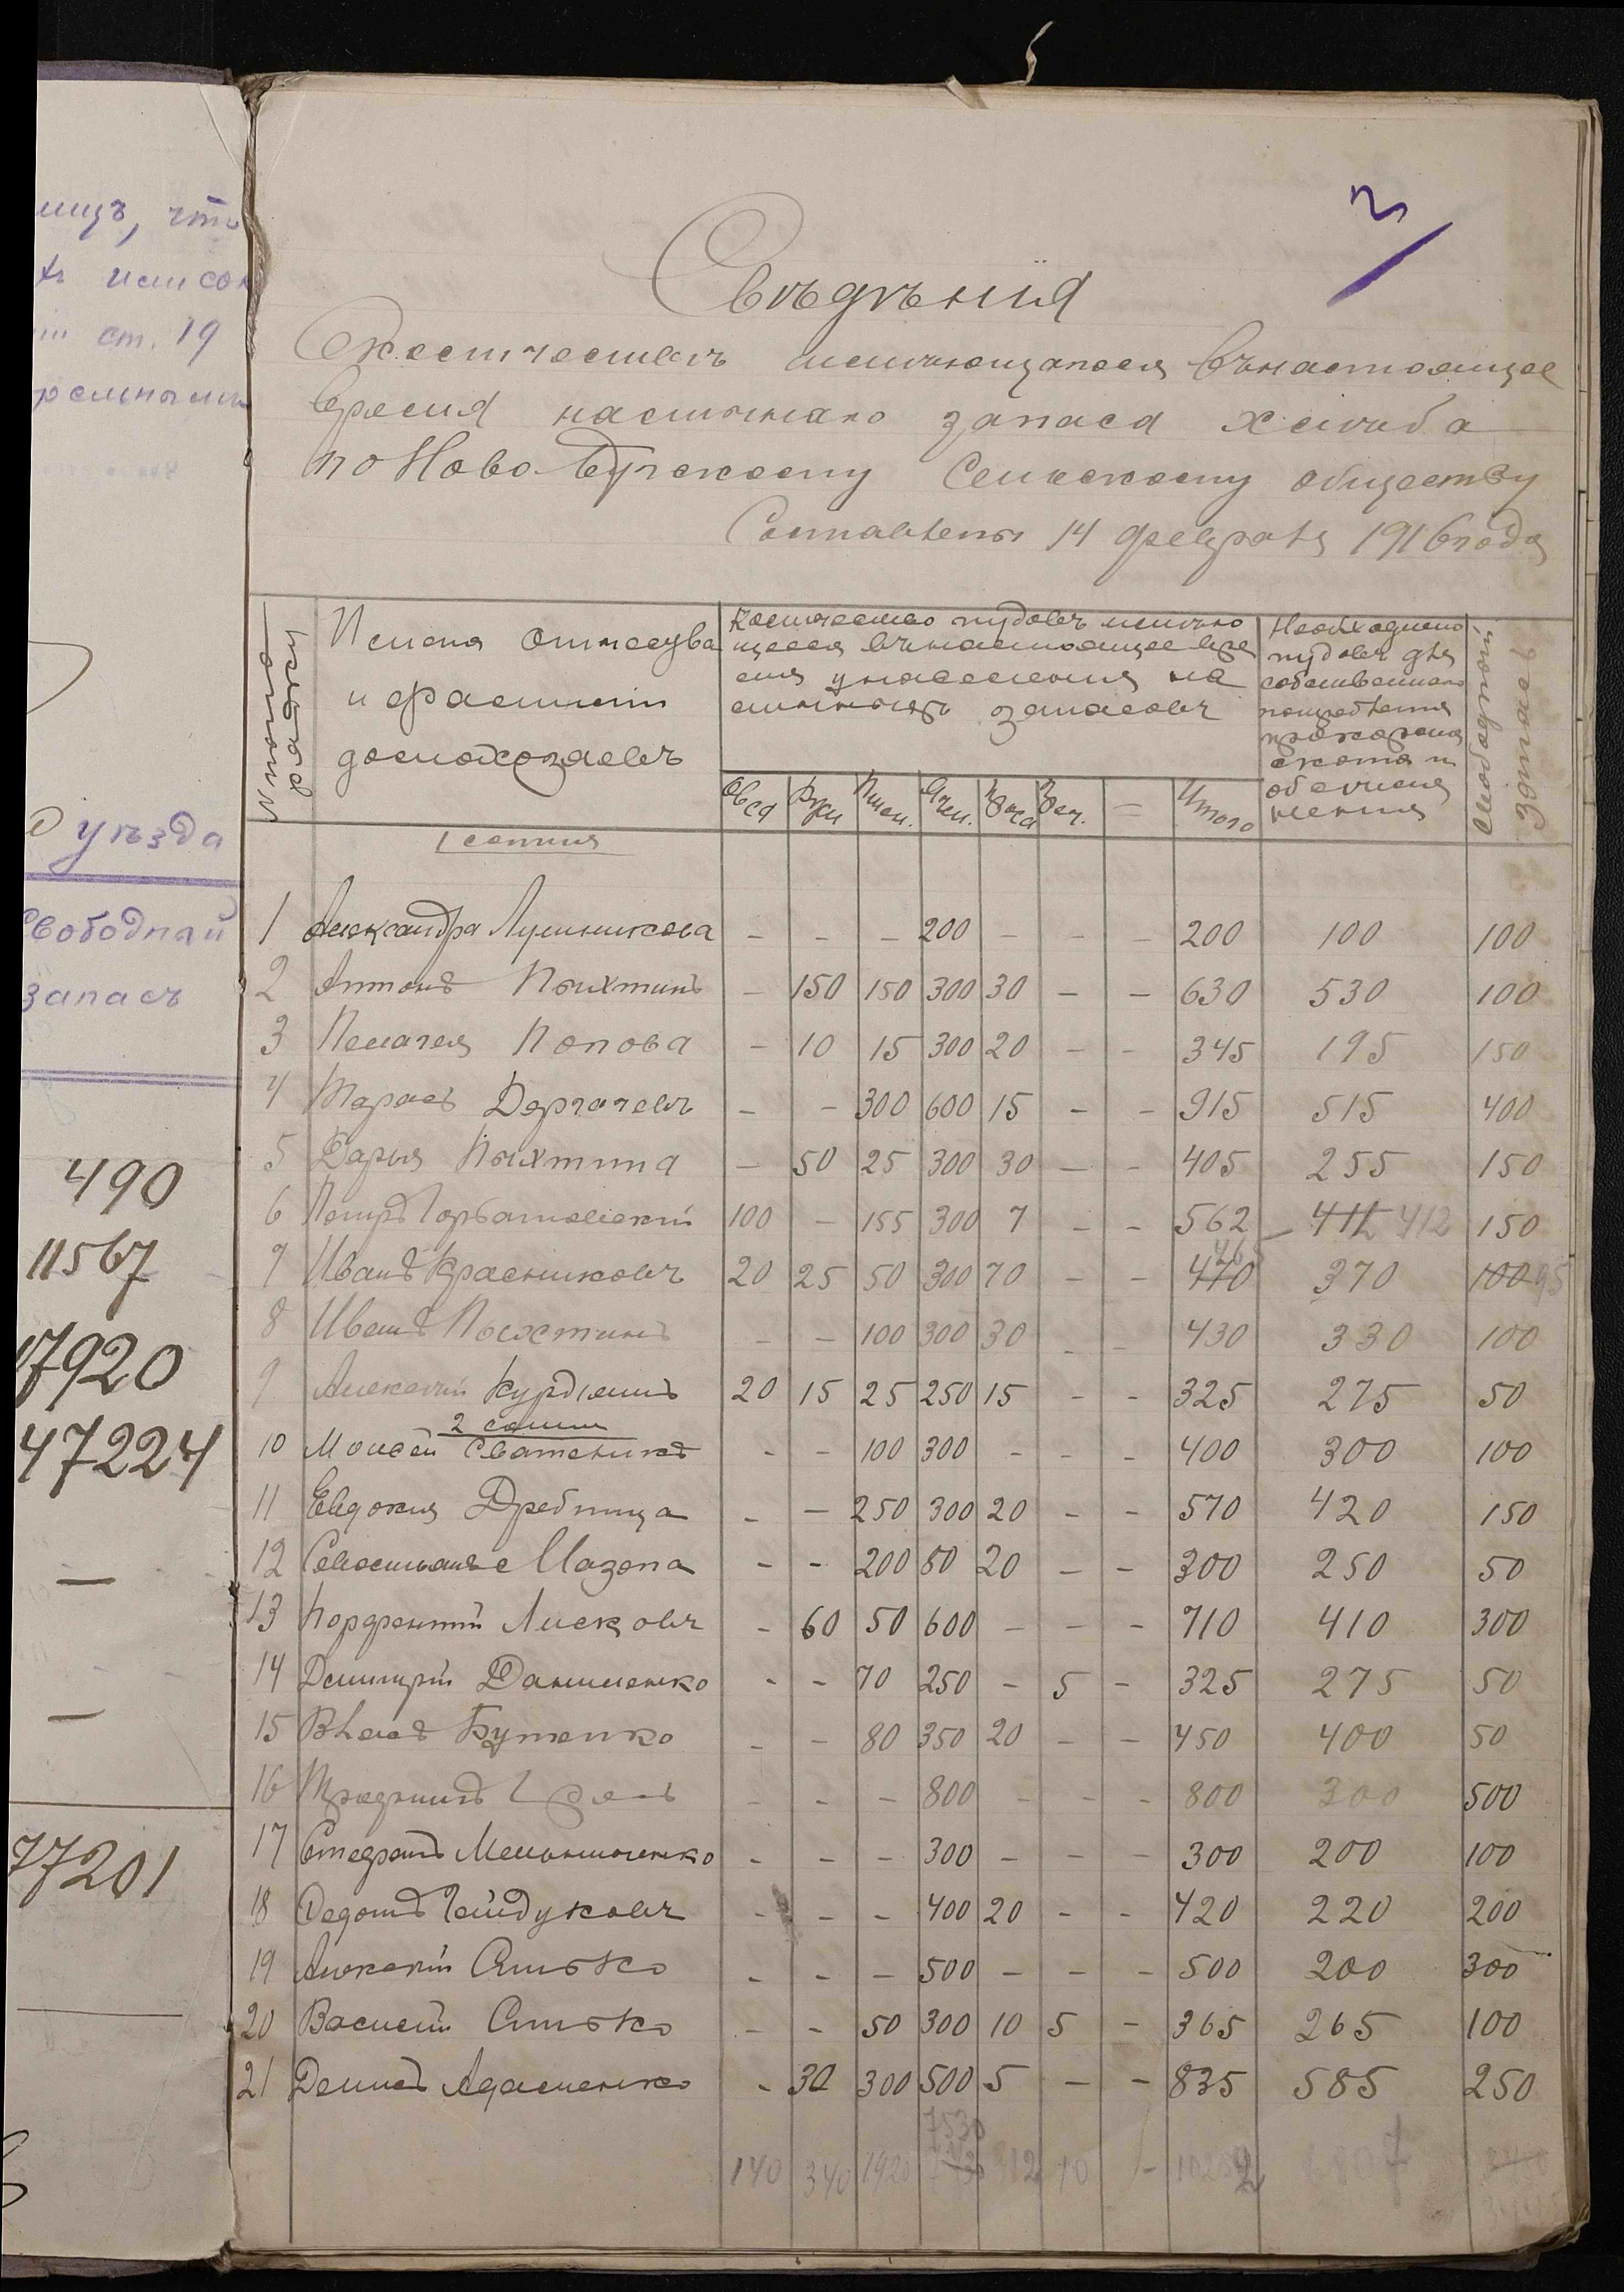 лицъ, что
ст. 19
уѣзда
свободный
запасъ
490
11567
17920
47224
—
—
77201
3
Свѣдѣнія
О количествѣ имѣющагося въ настоящее
время наличнаго запаса хлѣба
по Ново-Бугскому Сельскому обществу
Составлены 14 февраля 1916 года
№ дворовъ
Имена Отчества
и фамиліи
домохозяевъ
Количество пудовъ имѣю
щееся въ настоящее вре
мя у населенія на
личныхъ запасовъ
Необходимо
пудовъ для
собственнаго
потребленія
прокорма
скота и
обсѣмене
ненія
Свободный
запасъ
Овса Ржи Пшен. Ячм. Проса — Итого
1 сотня
1 Александра Лушникова — — — 200 — — — 200 100 100
2 Антонъ Пыхтинъ — 150 150 300 30 — — 630 530 100
3 Пелагея Попова — 10 15 300 20 — — 345 195 150
4 Тарасъ Дергачевъ — — 300 600 15 — — 915 515 400
5 Дарья Пыхтина — 50 25 300 30 — — 405 255 150
6 Петръ Горбатовскій 100 — 155 300 7 — — 562 412 150
7 Иванъ Красниковъ 20 25 50 300 70 — — 470 465 370 100 95
8 Иванъ Пыхтинъ — — 100 300 30 - - 430 330 100
9 Алексѣй Курдіемъ 20 15 25 250 15 - - 325 275 50
2 сотни
10 Моисей Сватенко - - 100 300 - - - 400 300 100
11 Евдокия Дребница - — 250 300 20 - - 570 420 150
12 Севостьянъ Мазепа - - 200 80 20 — - 300 250 50
13 Порфентій Лисковъ - 60 50 600 — — - 710 410 300
14 Демитрій Даниленко - - 70 250 - 5 - 325 275 50
15 Власъ Бутенко - - 80 350 20 — — 450 400 50
16 - - — 800 - - - 800 300 500
17 Стефанъ Мельниченко - — — 300 — — — 300 200 100
18 Федотъ Гайдуковъ - — — 400 20 - - 420 220 200
19 Алексѣй Ситько - - — 500 — — — 500 200 300
20 Василій Ситько - - 50 300 10 5 - 365 265 100
21 Денисъ Адаменко - 30 300 500 5 — - 835 585 250
7530
140 340 1920 312 10 —